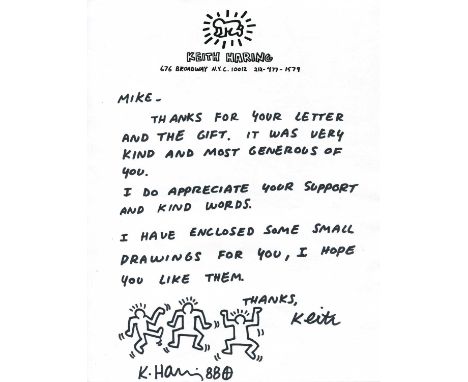 KEITH HARING
676 BROADWAY N.Y.C. 10012 212-477-1579
MIKE-
THANKS FOR YOUR LETTER
AND THE GIFT. IT WAS VERY
KIND AND MOST GENEROUS OF
YOU.
I DO APPRECIATE YOUR SUPPORT
AND KIND WORDS.
I HAVE ENCLOSED SOME SMALL
DRAWINGS FOR YOU, I HOPE
YOU LIKE THEM.
THANKS,
Keith
K. Haring 88